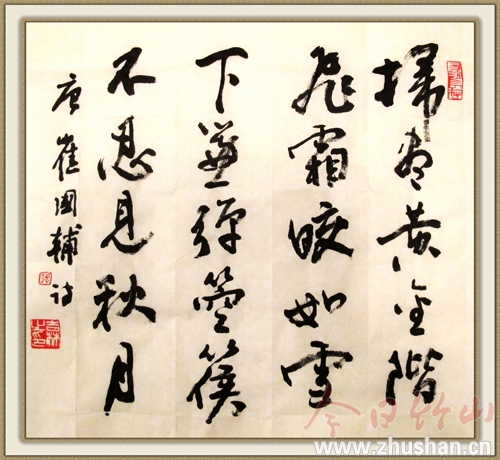 掃盡黄金階
飛霜皎如雪
下簾彈箜篌
不忍見秋月
唐崔國輔詩
今日竹山
www.zhushan.cn